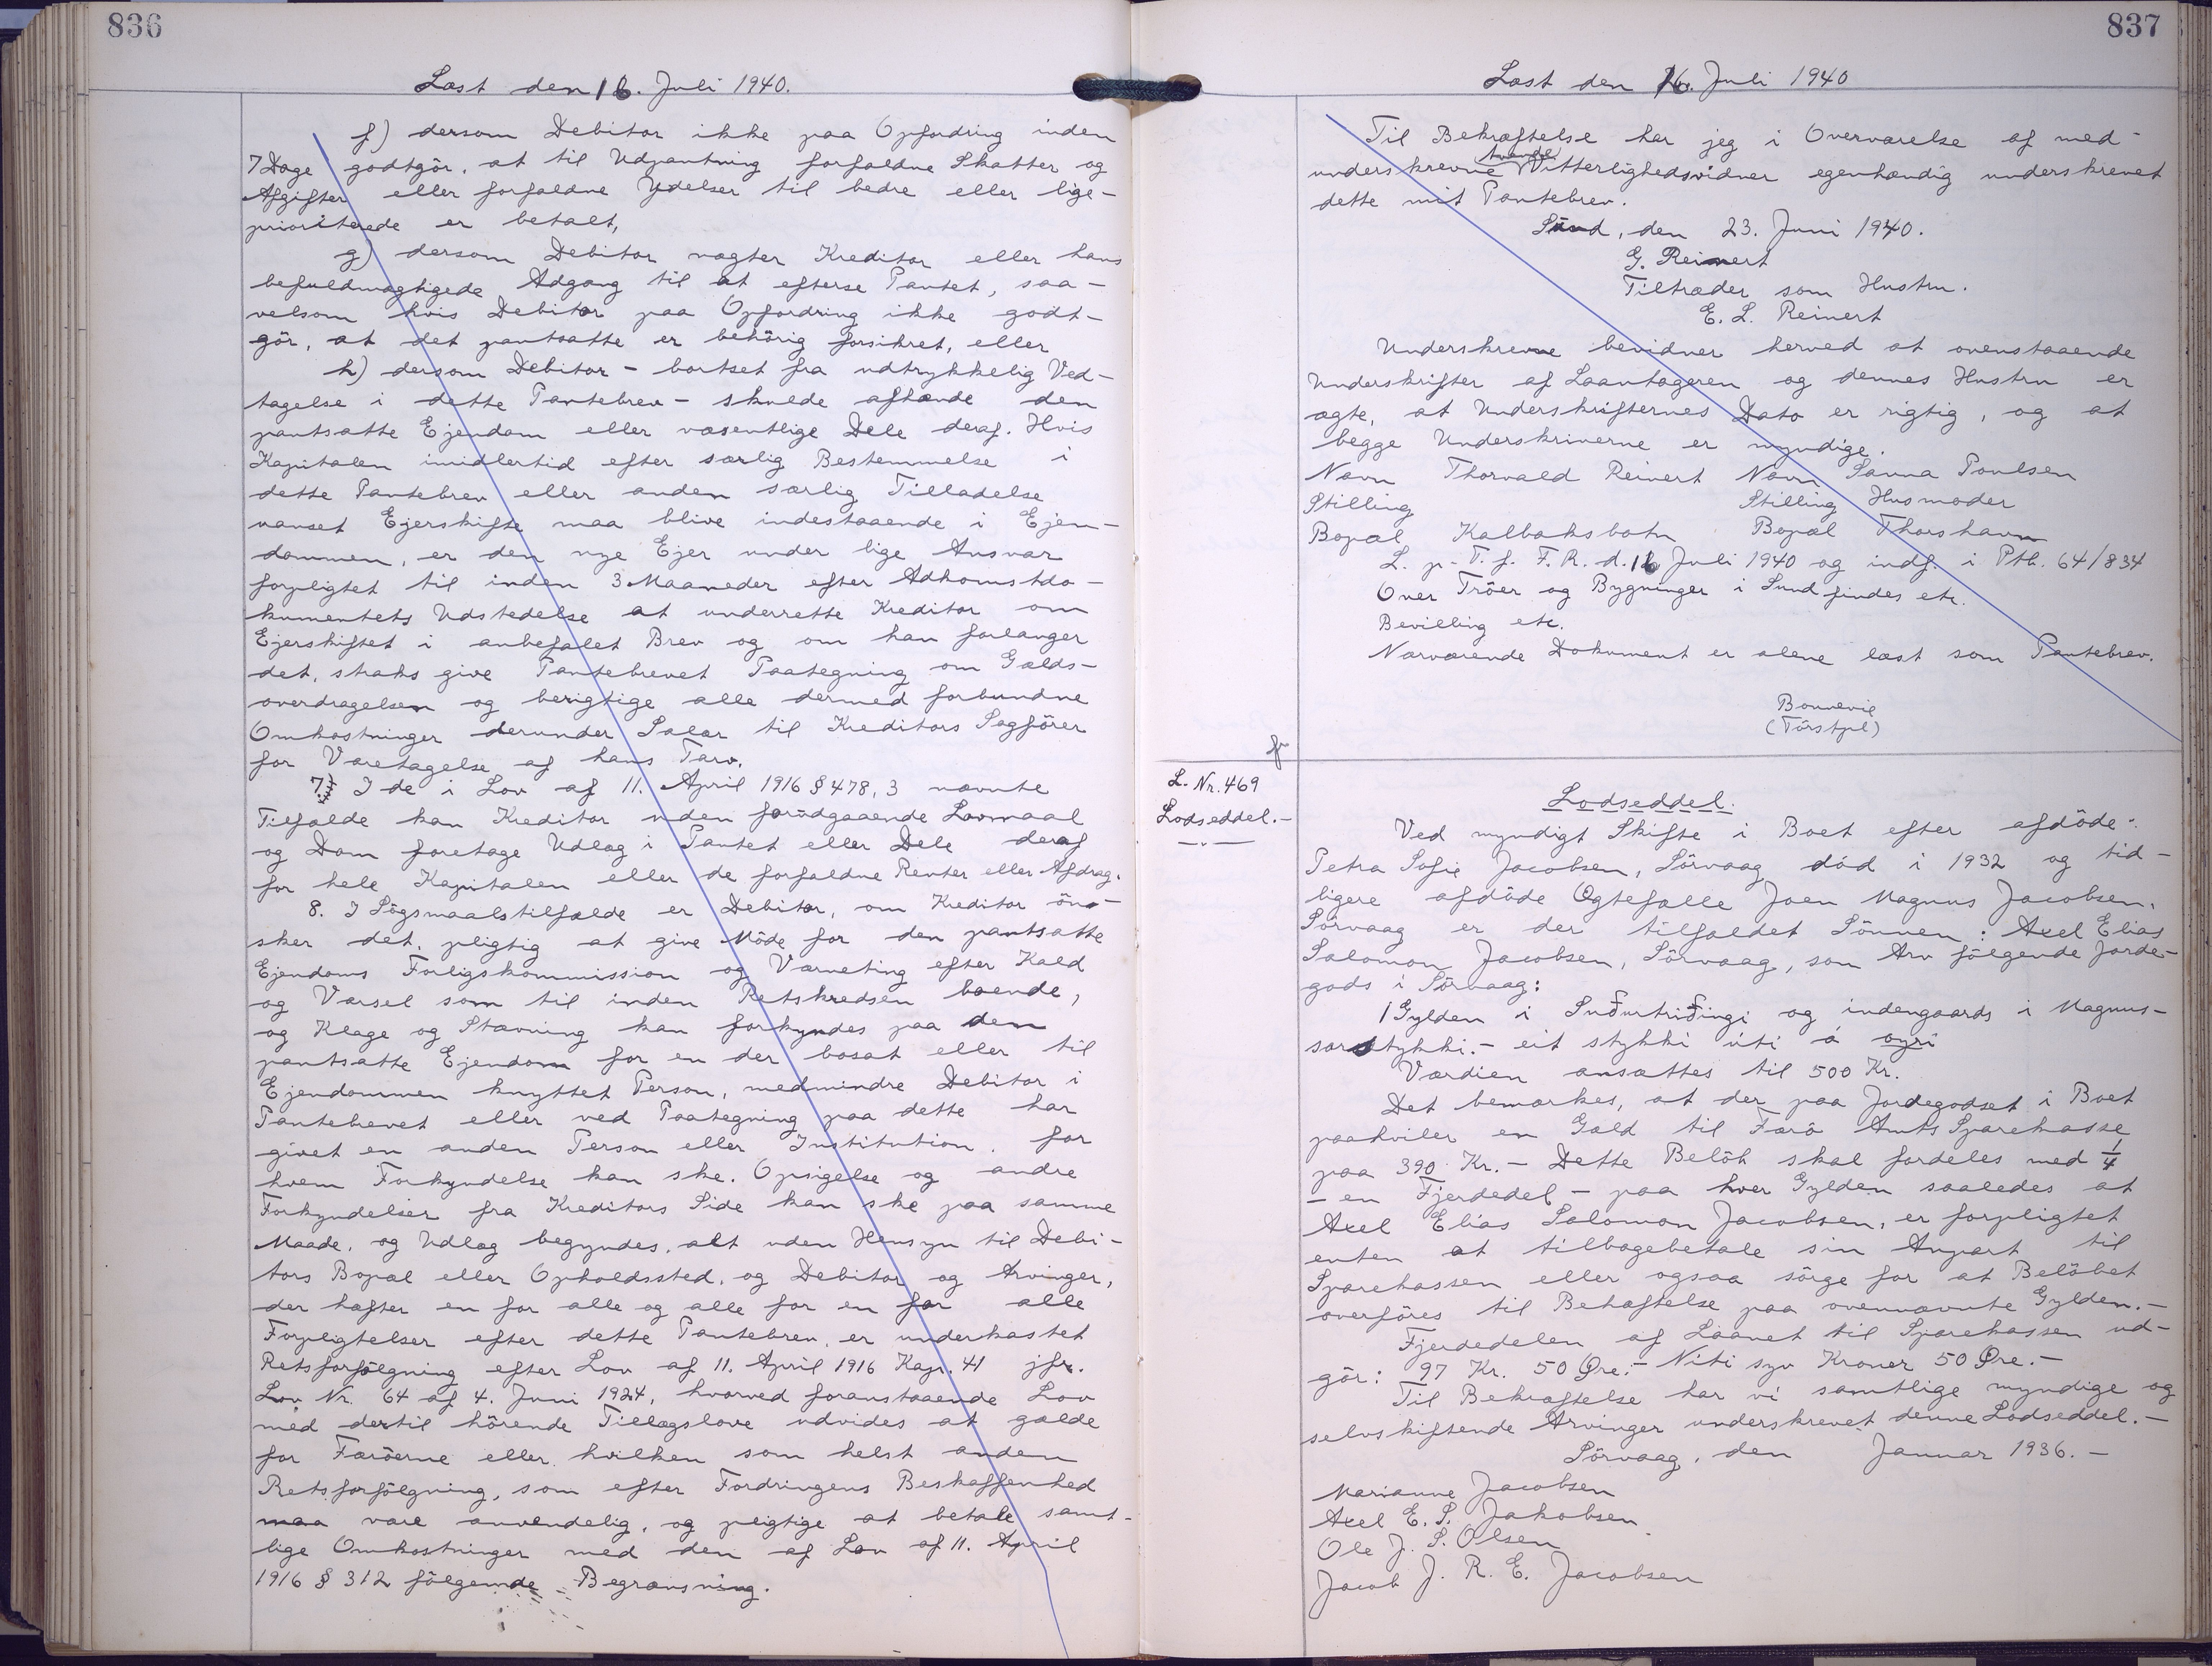 836
Læst den 16. Juli 1940.
f) dersom Debitor ikke paa Opfordring inden
7 Dage godtgör, at til Udpantning forfaldne Skatter og
Afgifter eller forfaldne Ydelser til bedre eller lige-
prioriterede er betalt,
g) dersom Debitor nægter Kreditor eller hans
befuldmægtigede Adgang til at efterse Pantet, saa-
velsom hvis Debitor paa Opfordring ikke godt-
gör, at det pantsatte er behörig forsikret, eller
h) dersom Debitor - bortset fra udtrykkelig Ved-
tagelse i dette Pantebrev - skulde afhænde den
pantsatte Ejendom eller væsentlige Dele deraf. Hvis
Kapitalen imidlertid efter særlig Bestemmelse i
dette Pantebrev eller anden særlig Tilladelse
uanset Ejerskifte maa blive indestaaende i Ejen-
dommen, er den nye Ejer under lige Ansvar
forpligtet til inden 3 Maaneder efter Adkomstdo-
kumentets Udstedelse at underrette Kreditor om
Ejerskiftet i anbefalet Brev og om han forlanger
det, straks give Pantebrevet Paategning om Gælds-
overdragelsen og berigtige alle dermed forbundne
Omkostninger derunder Salær til Kreditors Sagförer
for Varetagelse af hans Tarv.
7) I de i Lov af 11. April 1916 § 478, 3 nævnte
Tilfælde kan Kreditor uden forudgaaende Lovmaal
og Dom foretage Udlæg i Pantet eller Dele deraf
for hele Kapitalen eller de forfaldne Renter eller Afdrag.
8. I Sögsmaalstilfælde er Debitor, om Kreditor öns-
sker det, pligtig at give Möde for den pantsatte
Ejendoms Forligskommission og Værneting efter Kald
og Varsel som til inden Retskredsen boende,
og Klage og Stævning kan forkyndes paa den
pantsatte Ejendom for en der bosat eller til
Ejendommen knyttet Person, medmindre Debitor i
Pantebrevet eller ved Paategning paa dette har
givet en anden Person eller Institution, for
hvem Forkyndelse kan ske. Opsigelse og andre
Forkyndelser fra Kreditors Side kan ske paa samme
Maade, og Udlæg begyndes, alt uden Hensyn til Debi-
tors Bopæl eller Opholdssted, og Debitor og Arvinger,
der hæfter en for alle og alle for en for alle
Forpligtelser efter dette Pantebrev, er underkastet
Retsforfölgning efter Lov af 11. April 1916 Kap. 41 jfr.
Lov Nr. 64 af 4. Juni 1924, hvorved foranstaaende Lov
med dertil hörende Tillægslove udvides at gælde
for Færöerne eller hvilken som helst anden
Retsforfölgning, som efter Fordringens Beskaffenhed
maa være anvendelig, og pligtige at betale samt-
lige Omkostninger med den af Lov af 11. April
1916 § 312 fölgende Begrænsning.
837
Læst den 16. Juli 1940
Til Bekræftelse har jeg i Overværelse af med-
underskrevne tvende Vitterlighedsvidner egenhændig underskrevet
dette mit Pantebrev.
Sund, den 23. Juni 1940.
G. Reinert
Tiltræder som Hustru.
E. L. Reinert
Underskrevne bevidner herved at ovenstaaende
Underskrifter af Laantageren og dennes Hustru er
ægte, at Underskrifternes Dato er rigtig, og at
begge Underskriverne er myndige.
Navn Thorvald Reinert Navn Sanna Poulsen
Stilling Stilling Husmoder
Bopæl Kalbaksbotn Bopæl Thorshavn
L. p. T. f. F. R. d. 16 Juli 1940 og indf. i Ptb. 64/834
Over Tröer og Bygninger i Sund findes etc.
Bevilling etc.
Nærværende Dokument er alene læst som Pantebrev.
Bonnevie
(Törstpl)
L. Nr. 469
Lodseddel.-
Lodseddel.
Ved myndigt Skifte i Boet efter afdöde
Petra Sofie Jacobsen, Sörvaag död i 1932 og tid-
ligere afdöde Ægtefælle Joen Magnus Jacobsen,
Sörvaag er der tilfaldet Sönnen: Axel Elias
Salomon Jacobsen, Sörvaag, som Arv fölgende Jorde-
gods i Sörvaag:
1 Gylden i Suðurtriðingi og indengaards i Magnus-
sarstykki.- eit stykki úti á oyri
Værdien ansættes til 500 Kr.
Det bemærkes, at der paa Jordegodset i Boet
paahviler en Gæld til Færö Amts Sparekasse
paa 390 Kr.- Dette Belöb skal fordeles med 1/4
- en Fjerdedel - paa hver Gylden saaledes at
Axel Elias Salomon Jacobsen, er forpligtet
enten at tilbagebetale sin Anpart til
Sparekassen eller ogsaa sörge for at Belöbet
overföres til Behæftelse paa ovennævnte Gylden.-
Fjerdedelen af Laanet til Sparekassen ud-
gör: 97 Kr. 50 Øre.- Niti syv Kroner 50 Øre.-
Til Bekræftelse har vi samtlige myndige og
selvskiftende Arvinger underskrevet denne Lodseddel.-
Sörvaag, den Januar 1936.-
Marianne Jacobsen
Axel E. S. Jakobsen
Ole J. S. Olsen
Jacob J. R. E. Jacobsen